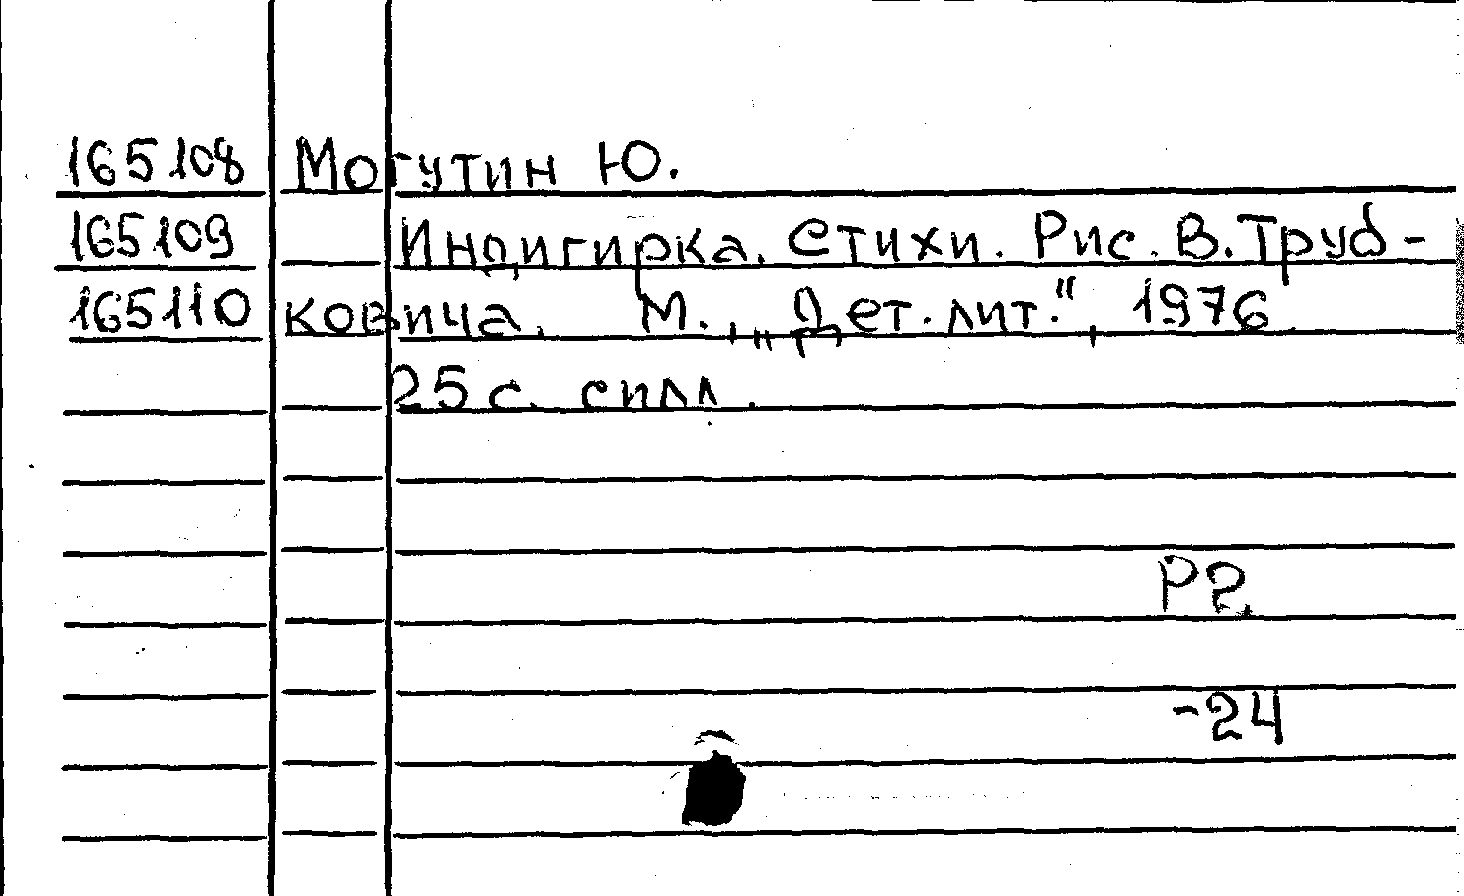 165108 Могутин Ю.
165109 Индигирка. Стихи. Рис. В. Труб-
165110 ковича. М., „Дет. лит.“, 1976
25 с. с илл.
Р2
-24